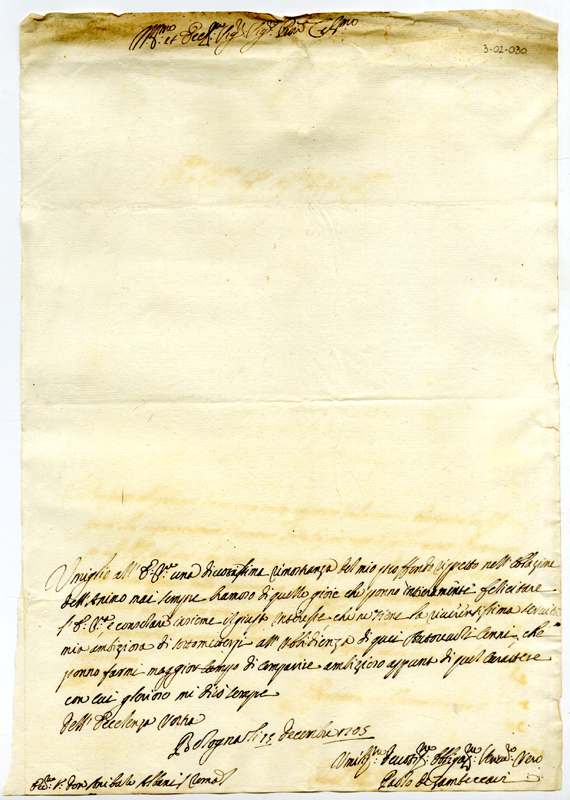 Ill.mo et Ecc.mo Sig.r Sig.r Pron Col.mo
3-02-030
Umiglio all' E. V.ra una divotissima rimostranza del mio profondo rispetto nell'
dell'Animo mai sempre bramoso di quelle gioie che ponno interamente felicitare
l' E. V.ra, e consolare insieme il giusto interesse che ne tiene la riverentissima servitù
mia ambiziosa di sottomettersi all' Ubbidienza di quei Autorevoli Cenni, che
ponno farmi maggior campo di comparire ambizioso appunto di quel Carattere
con cui glorioso mi dico sempre
dell' Eccelenza Vostra
Bologna li 15 decembre 1705
Umil.mo Devotis.mo Obligat.mo Serva.re Vero
Paolo de Zambeccari
D. Don Anibale Albani Roma